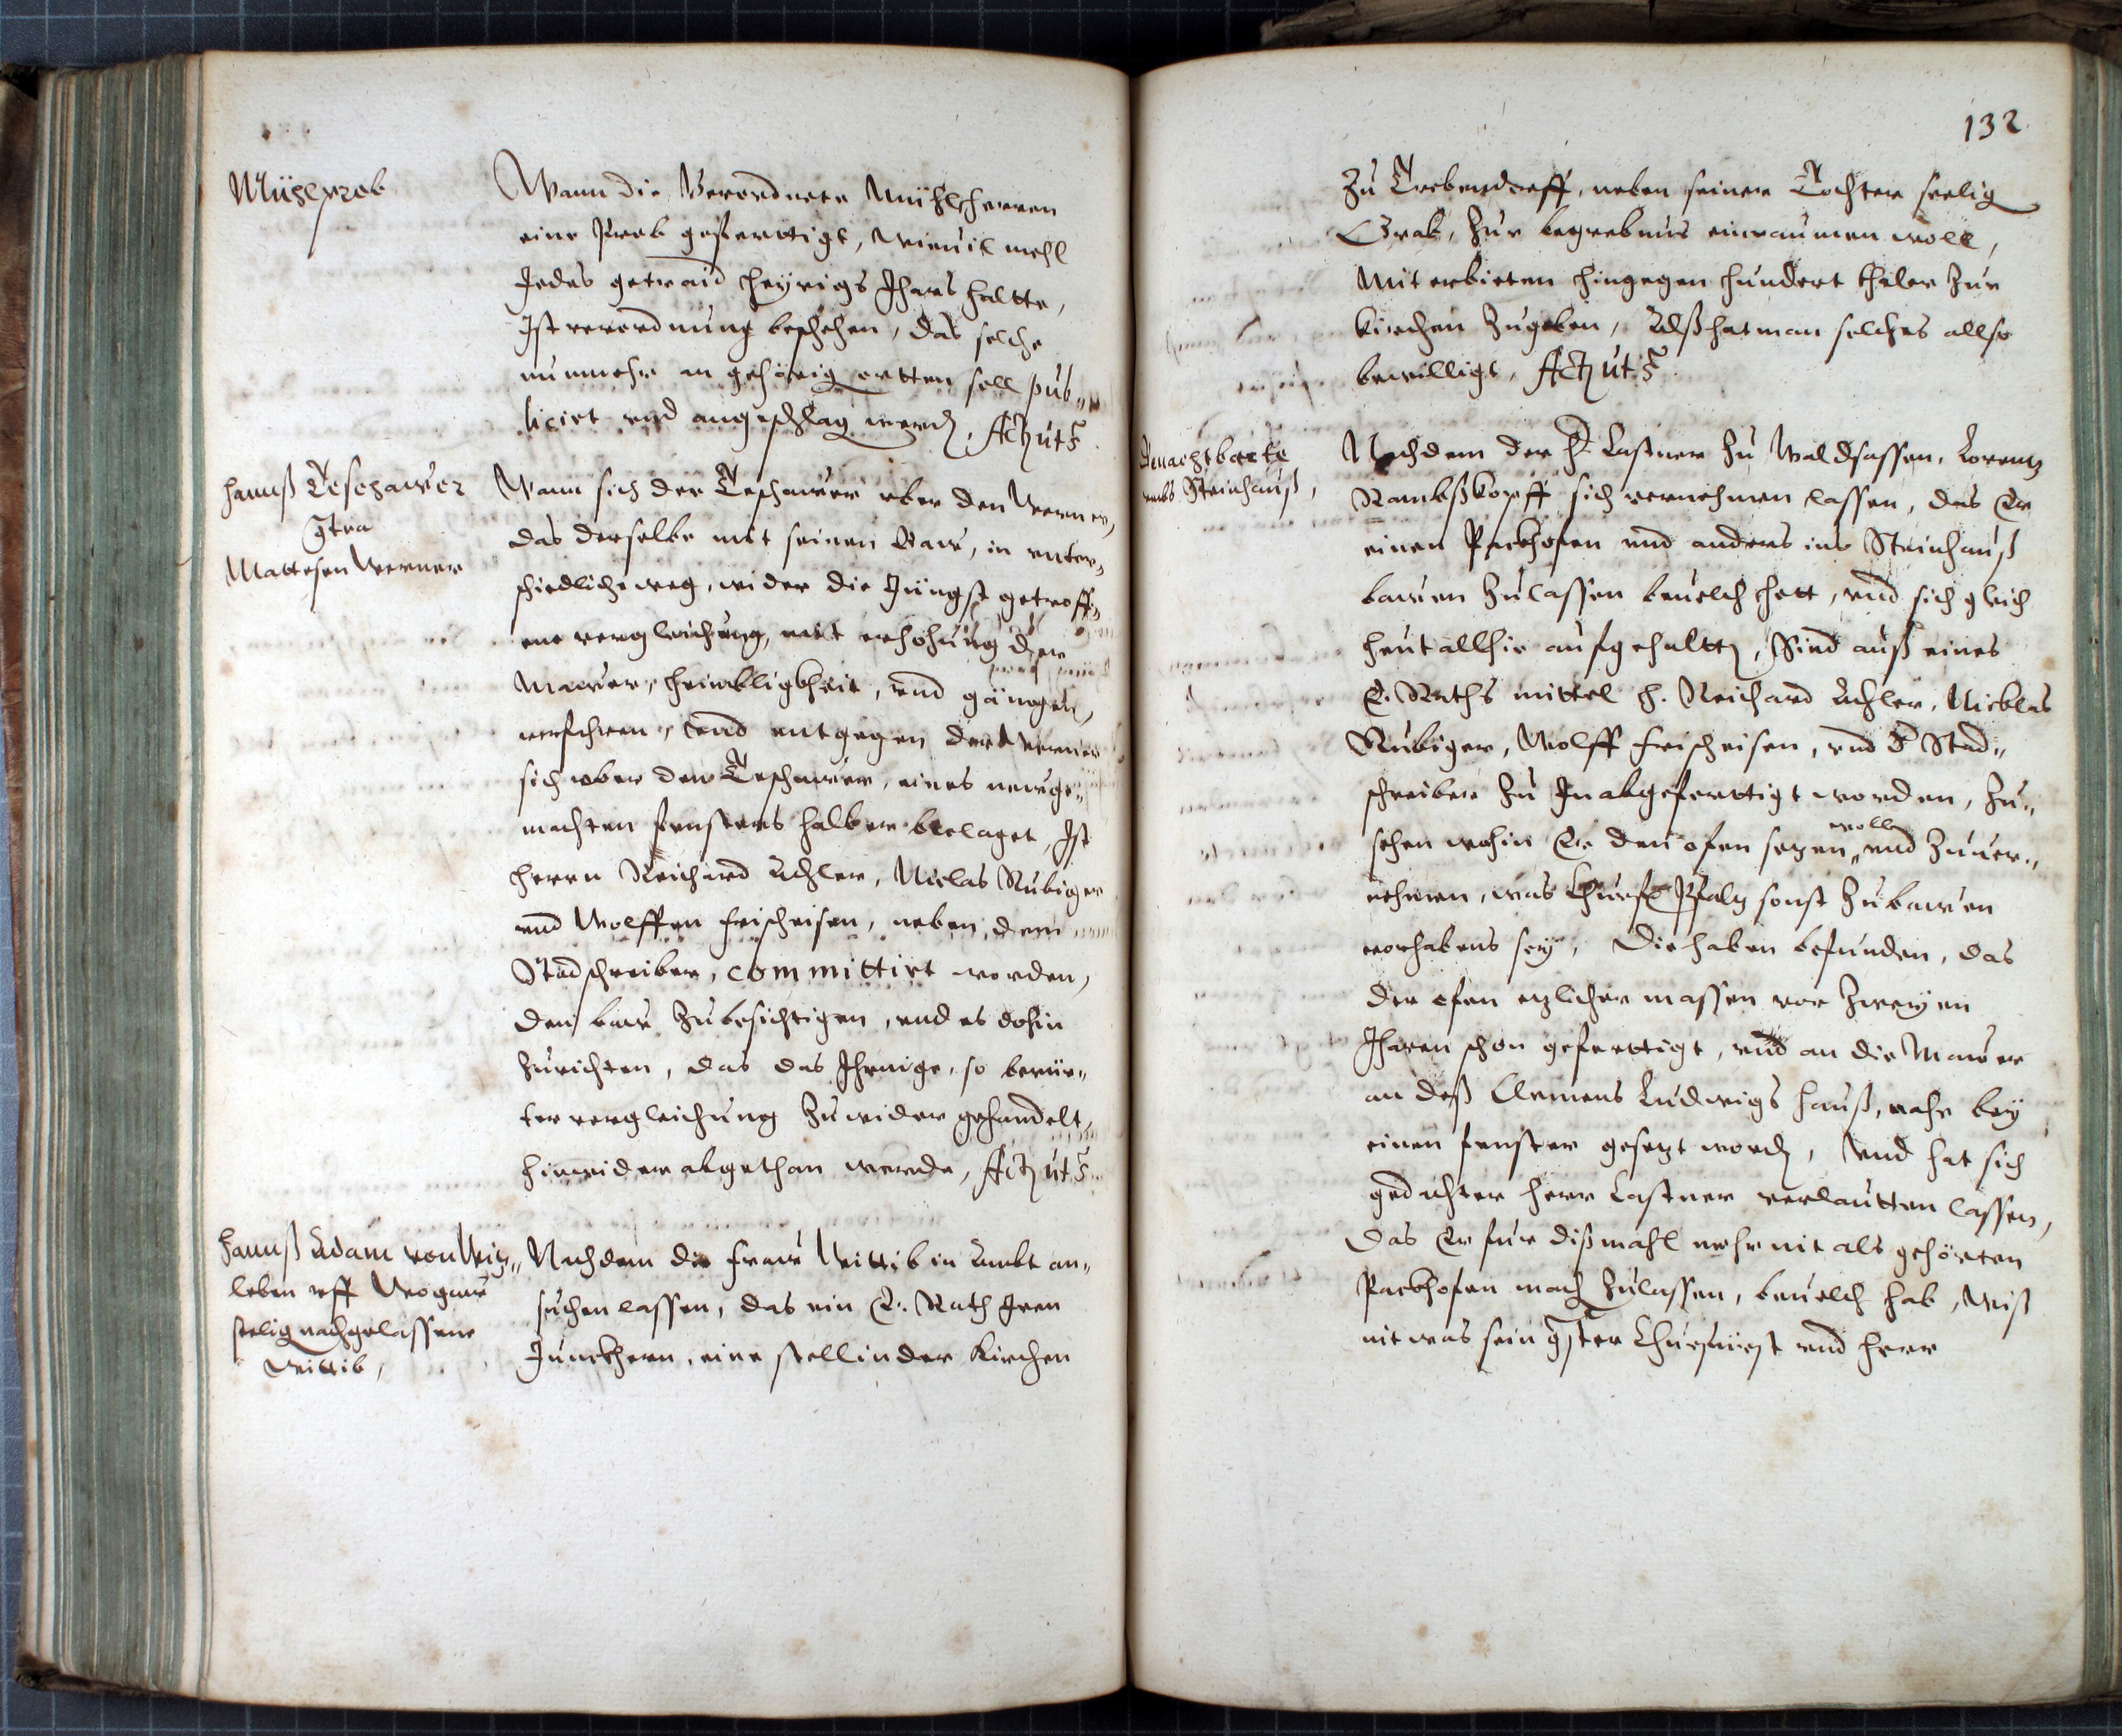 Mühlprob
Wann die Verordnete Mühlherren
eine Prob gefertigt, wieuil mehl
Jedes getraid heyrigs Jhars haltte,
Ist verordnung beschehen, das solche
nunmehr an gehörig ortten soll pub-
licirt vnd angeschlag werdn, Act ut s.
Hannß Teschawer
ctra
Matthesen Werner
Wann sich der Teschawer vber den Werner,
das derselbe mit seinen Baw, in vnter-
schiedliche weg, wider die Jüngst getroff-
ene vergleichung, mit erhöhung der
Mawer, heimbligkheit, vnd gängen,
verfahren, vnd entgegen der Werner
sich vber den Teschawer, eines newge-
machten fensters halber beclaget, Ist
herrn Reichard Achler, Niclas Rubiger
vnd Wolffen Frischeisen, neben dem
Stadschreiber, committirt worden,
den baw zubesichtigen, vnd es dohin
zurichten, das das Jhenige, so berür-
ter vergleichung zuwider gehandelt,
hinwider abgethan werde, Act ut s.
Hannß Adam von
leben vff Wogaw
seelig nachgelassene
Wittib,
Nachdem die Fraw Wittib in Ambt an-
suchen lassen, das ein E. Rath Jren
Junckhern, eine stell in der Kirchen
132
Zu Trebendorff, neben seiner Tochter seelig
Grab, zur begrebnus einraumen woll,
Mit erbieten hingegen hundert thaler zur
Kirchen zugeben, Alß hat man solches allso
bewilligt, Act ut s.
Steinhauß,
Nachdem der H. Castner zu Waldsassen, Lorentz
Rambßkopff sich vernehmen lassen, das Er
einen Packhofen vnd anders ins Steinhauß
bawen zulassen beuelch hett, vnd sich gleich
heut allhie aufgehalttn, Sind auß eines
E. Raths mittel H. Reichard Achler, Nicklas
Rubiger, Wolff Frischeisen, vnd d Stad-
schreiber zu Jn abgefertigt worden, zu-
sehen wohin Er den ofen setzen woll vnd zuuer-
nehmen, was Churf. Pfaltz sonst zubawen
vorhabens sey, Die haben befunden, das
der ofen etzlicher massen vor zweyen
Jharen schon gefertigt, vnd an die Mawer
an deß Clemens Ludwigs hauß, nahe bey
einen fenster gesetzt wordn, Vnd hat sich
gedachter Herr Castner verlautten lassen,
Das Er für dißmahl mehr nit als gehörten
Packhofen mach zulassen, beuelch hab, Wiß
nit was sein gster Churfürst vnd Herr